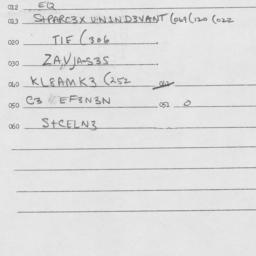 012 EQ
013 S+PARC3X U·N1ND3VANT (069 (120 (022
020 TIF (306
030 ZAVJAS3S
040 KL8AMK3 (252 042
050 C3 EF3N3N 052 0
060 S+C8LN3